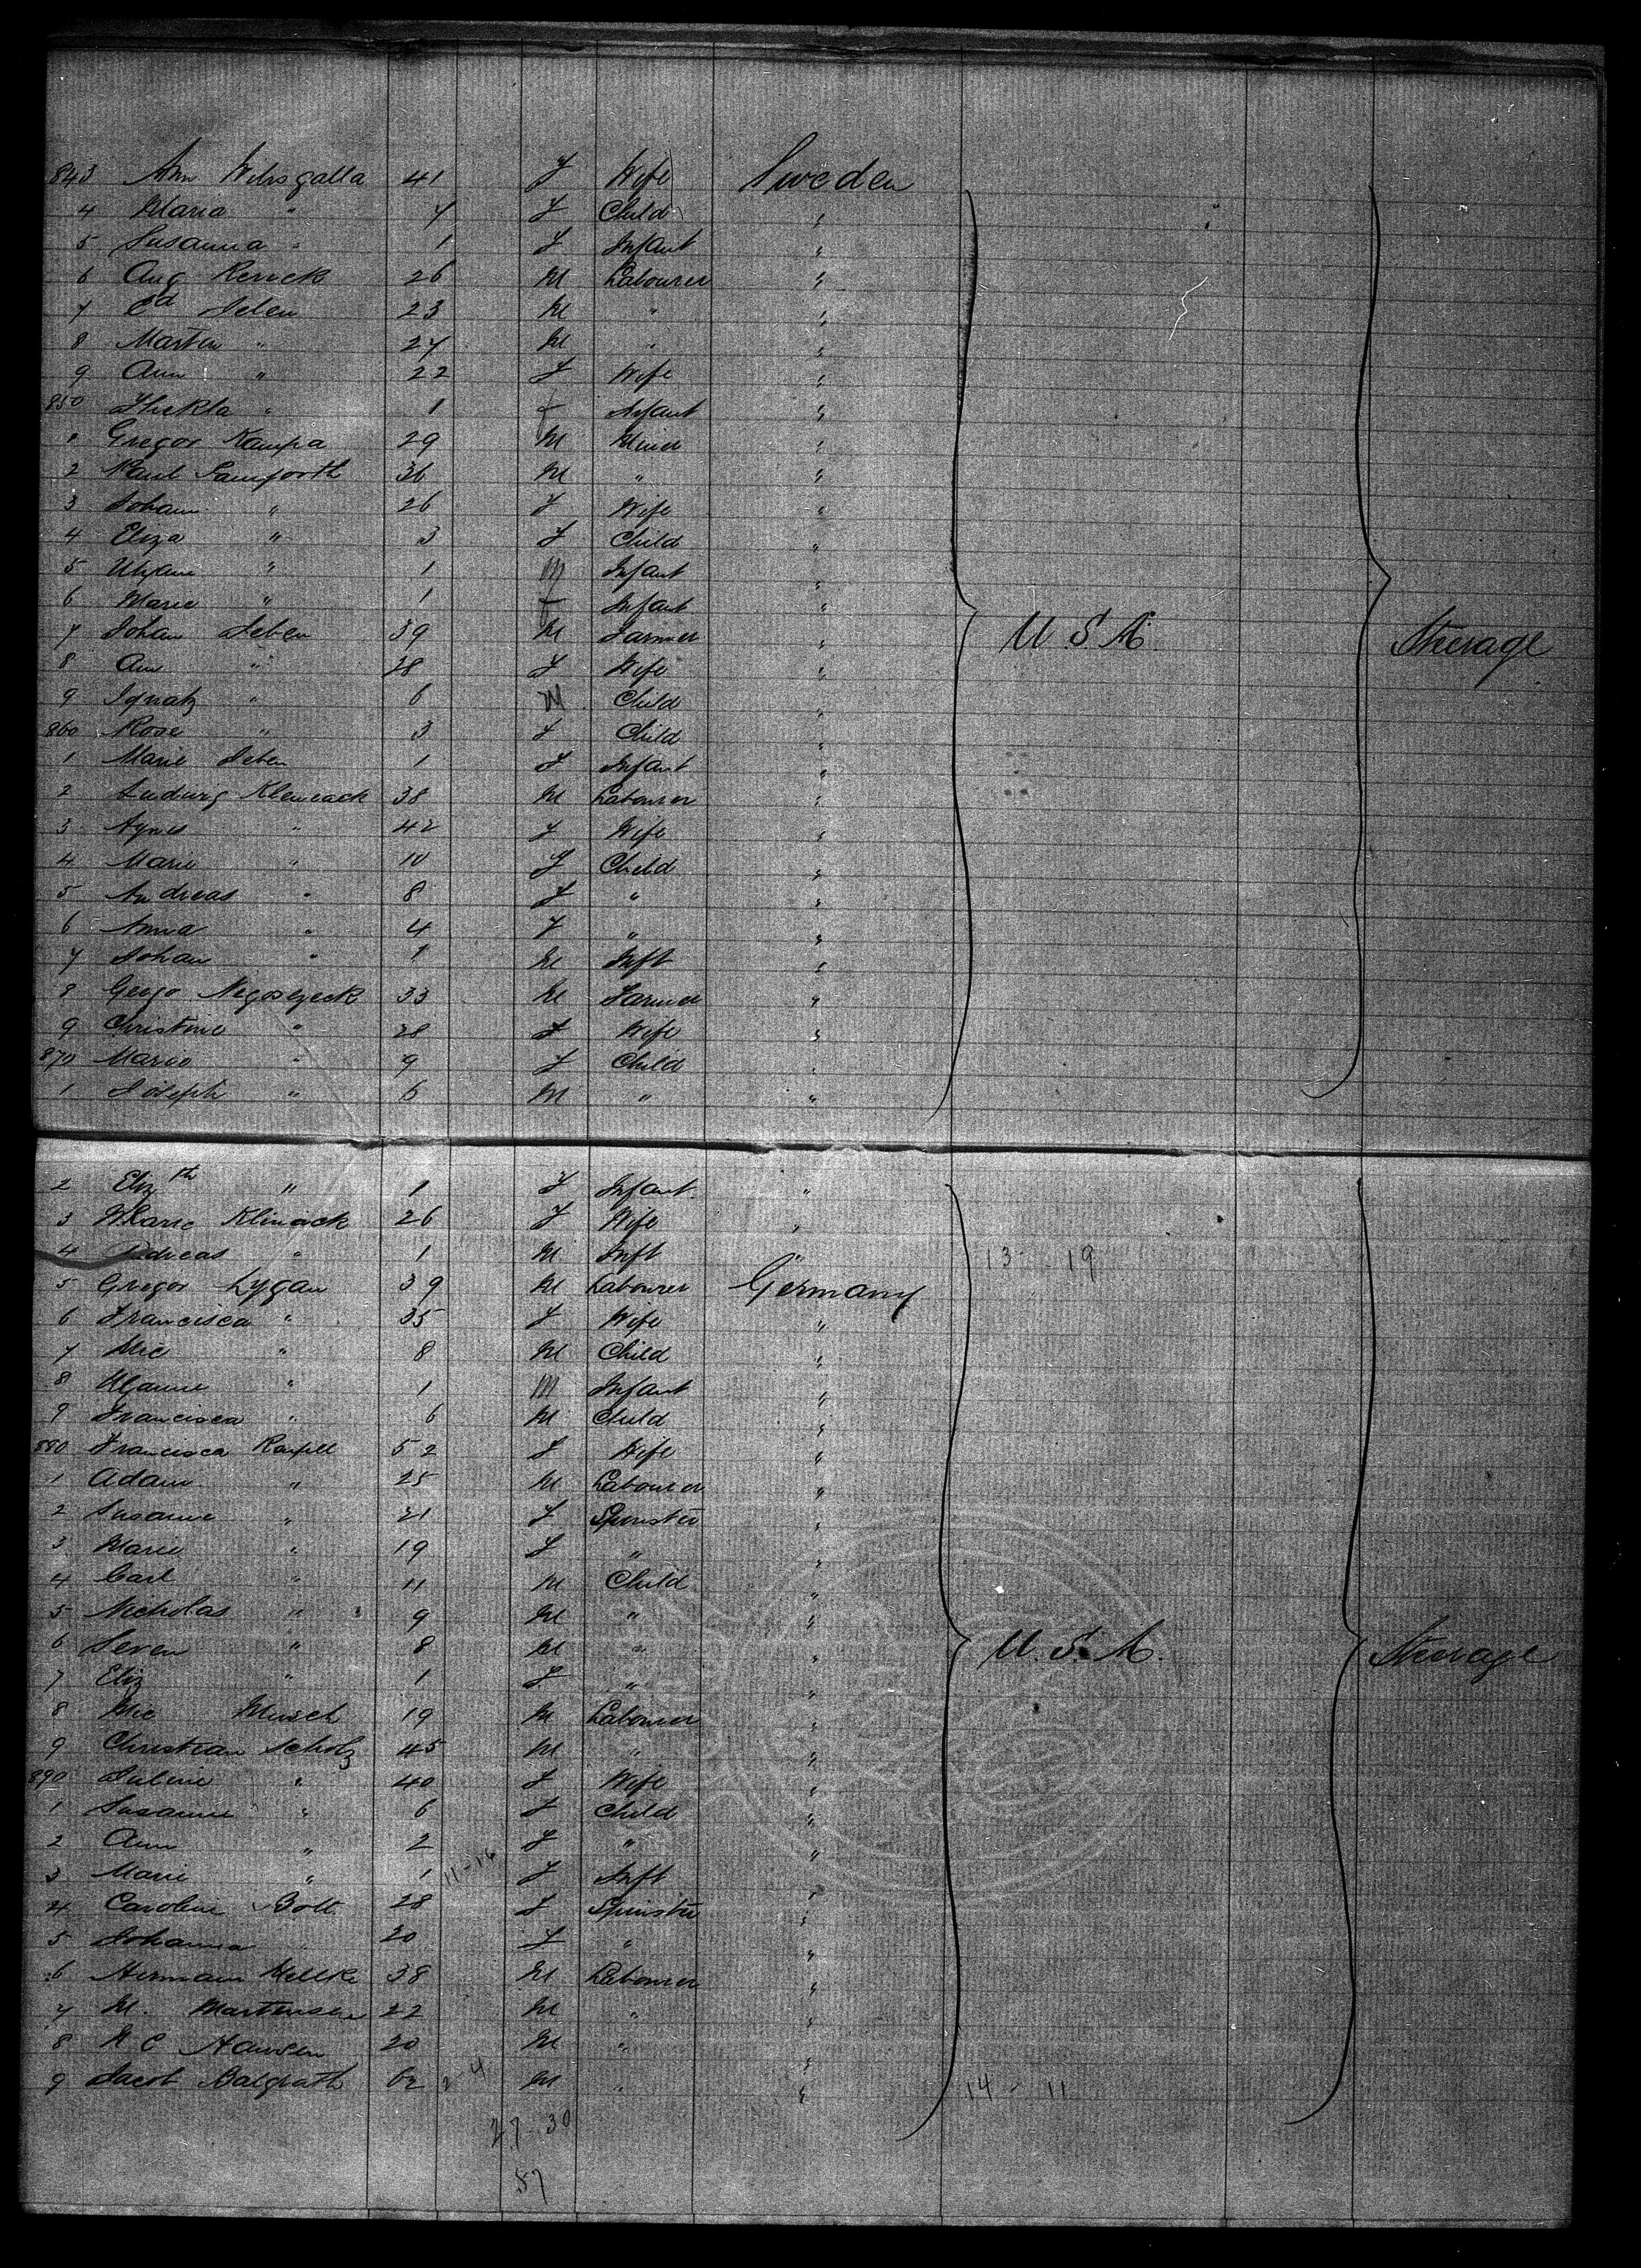 843 Ann Wilsgalla 41 F Wife Sweden
4 Maria " 7 F Child "
5 Susanna " 1 F Infant "
6 Aug Renick 26 M Labourer "
7 Ed Seben 23 M " "
8 Marten " 27 M " "
9 Ann " 22 F Wife "
850 Thekla " 1 F Infant "
1 Gregor Kampa 29 M Miner "
2 Paul 36 M " "
3 Johan " 26 F Wife "
4 Eliza " 3 F Child "
5 " 1 M Infant "
6 Marie " 1 F Infant "
7 Johan Seben 39 M Farmer " U.S.A. Steerage
8 Ann " 28 F Wife "
9 Ignatz " 6 M Child "
860 Rose " 3 F Child "
1 Marie Seben 1 F Infant "
2 Ludwig 38 M Labourer "
3 Agnes " 42 F Wife "
4 Marie " 10 F Child "
5 Andreas " 8 F " "
6 Anna " 4 F " "
7 Johan " 1 M Inft "
8 33 M Farmer "
9 Christine " 28 F Wife "
870 " 9 F Child "
1 Joseph " 6 M " "
2 Elizth " 1 F Infant "
3 Marie Klimack 26 F Wife "
4 Andreas " 1 M Inft " 13 - 19
5 Gregor Lygan 39 M Labourer Germany
6 Francisca " 35 F Wife "
7 Mic " 8 M Child "
8 " 1 M Infant "
9 Francisca " 6 M Child "
880 Francisca 52 F Wife "
1 Adam " 25 M Labourer "
2 Susanne " 21 F Spinster "
3 Marie " 19 F " "
4 Carl " 11 M Child "
5 Nicholas " 9 M " "
6 Seven " 8 M " " U.S.A. Steerage
7 Eliz " 1 F " "
8 Mic 19 M Labourer "
9 Christian Scholz 45 M " "
890 " 40 F Wife "
1 Susanne " 6 F Child "
2 Ann " 2 F " "
3 Marie " 1 11-16 F Inft "
4 Caroline Bott 28 F Spinster "
5 Johanna " 20 F " "
6 Herman 38 M Labourer "
7 M. Martensen 22 M " "
8 C Hansen 20 M " "
9 Jacob 62 M " " 14 - 11
27-30
57